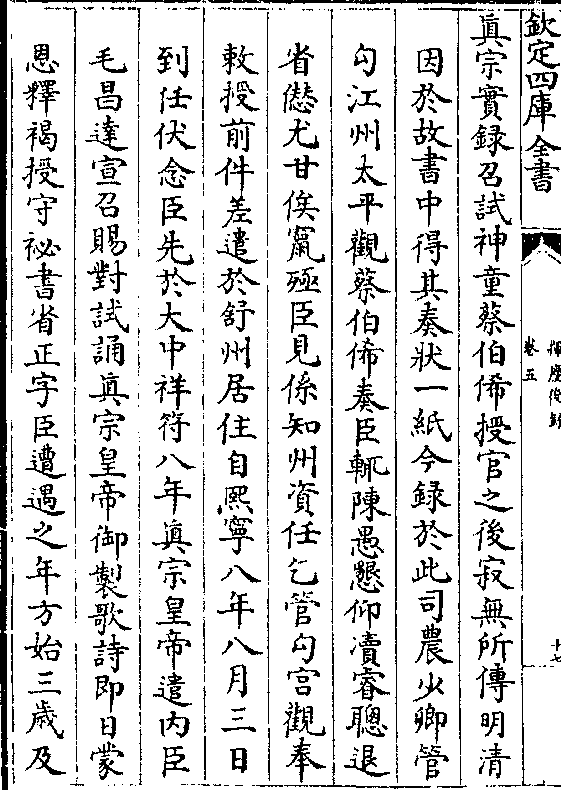 欽定四庫全書
揮麈後錄
卷五
十七
眞宗實録召試神童蔡伯俙授官之後寂無所傳明清
因於故書中得其奏狀一紙今録於此司農少卿管
勾江州太平觀蔡伯俙奏臣輒陳愚懇仰凟睿聰退
省僽尤甘俟竄殛臣見係知州資任乞管勾宫觀奉
敕授前件差遣於舒州居住自熙寧八年八月三日
到任伏念臣先於大中祥符八年眞宗皇帝遣内臣
毛昌達宣召賜對試誦眞宗皇帝御製歌詩即日蒙
恩釋褐授守祕書省正字臣遭遇之年方始三歲及